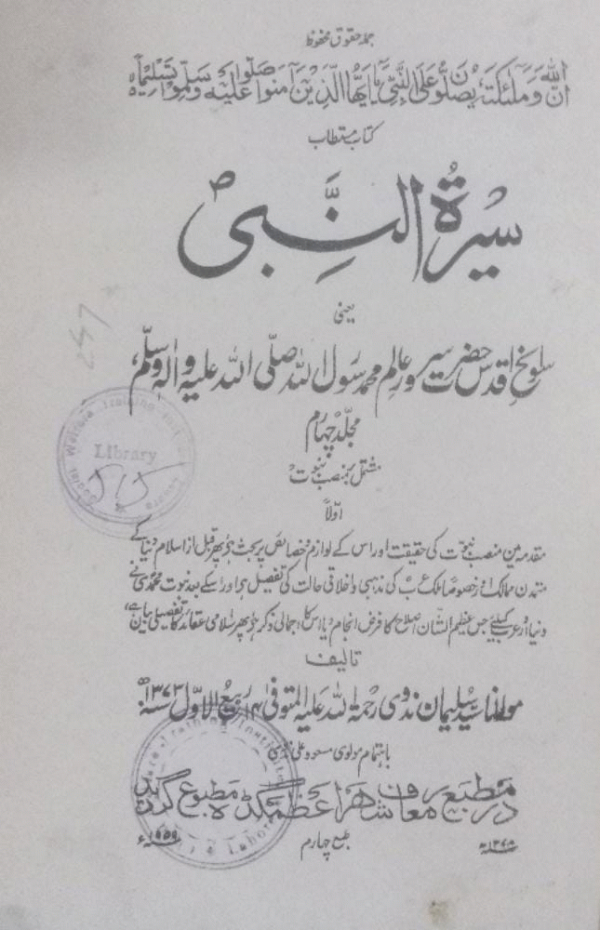 جملہ حقوق محفوظ
اِنَّ اللّٰهَ وَمَلٰٓئِكَتَهٗ يُصَلُّوْنَ عَلَى النَّبِيِّ يٰٓاَيُّهَا الَّذِيْنَ اٰمَنُوْا صَلُّوْا عَلَيْهِ وَسَلِّمُوْا تَسْلِيْمًا
کتاب مستطاب
سیرۃ النَّبی ؐ
یعنی
سوانح اقدس حضرت سرور عالم محمد رسول اللہ صلّی اللہ علیہ واٰلہ وسلّم
مجلد چہارم
مشتمل بمنصب نبوت
اولاً
مقدمہ مین منصب نبوت کی حقیقت اور اس کے لوازم خصائص پر بحث ہو، پھر قبل از اسلام دنیا کے
متمدن ممالک اور خصوصاً ملک عرب کی مذہبی و اخلاقی حالت کی تفصیل ہو اور اسکے بعد نبوت محمدی نے
دنیا اور عرب کیلئے جس عظیم الشان اصلاح کا فرض انجام دیا اس کا اجمالی ذکر ہو، پھر اسلامی عقائد کا تفصیلی بیان ہے،
تالیف
مولانا سید سلیمان ندوی رحمۃ اللہ علیہ المتوفی ۱۴ ربیع الاوّل ۱۳۷۳ھ
باہتمام مولوی مسعود علی ندوی
در مطبع معارف شہر اعظم گڈہ مطبوع گردید
۱۳۷۸ھ طبع چہارم ۱۹۵۹ء
Library
515
247